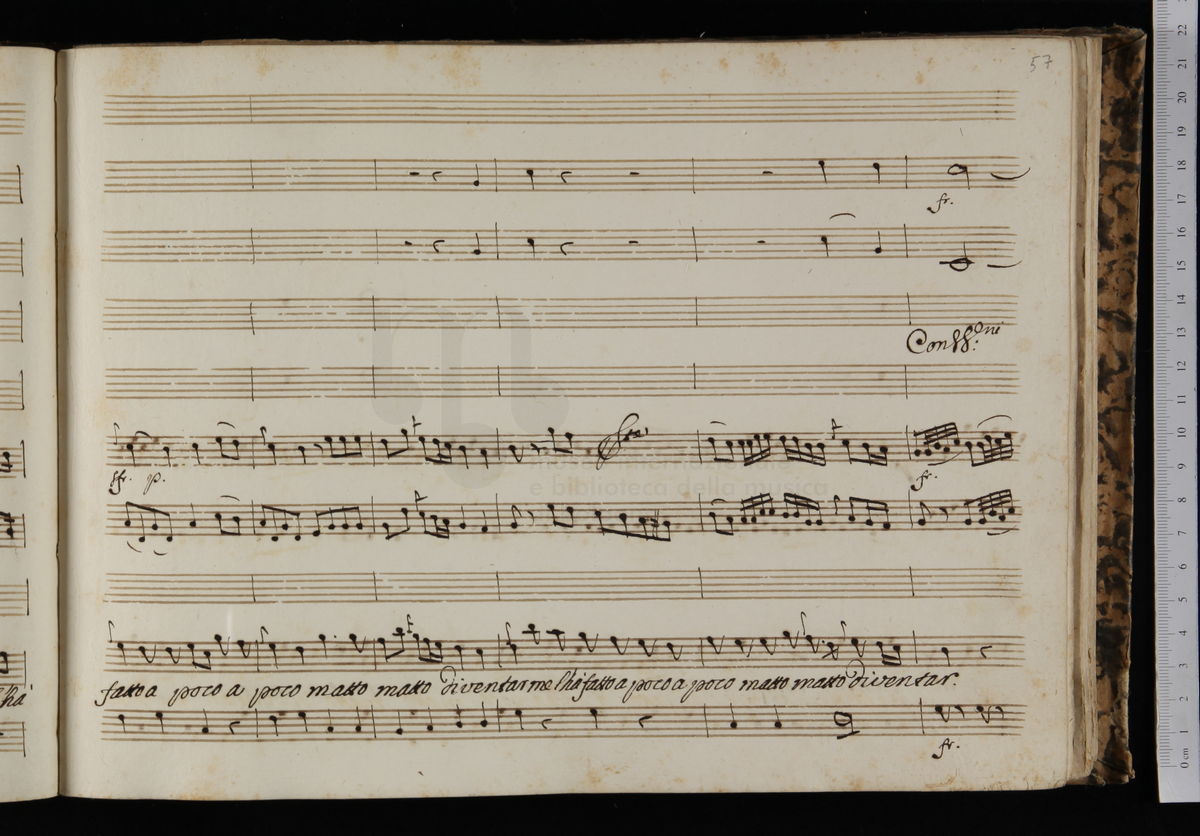 57
fr.
Con VV.ni
sfr. p. fr.
museo internazionale
e biblioteca della musica
fatto a poco a poco matto matto diventar me l'hà fatto a poco a poco matto matto diventar.
hà
fr.
22
21
20
19
18
17
16
15
14
13
12
11
10
9
8
7
6
5
4
3
2
1
0 cm